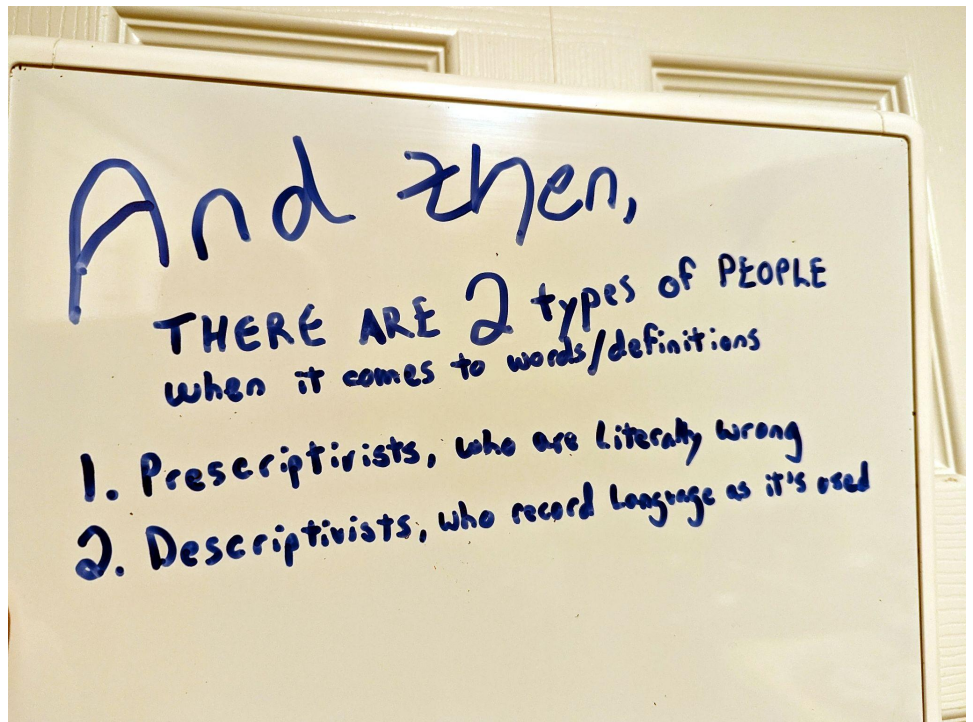 And then,
THERE ARE 2 types of PEOPLE
when it comes to words/definitions
1. Prescriptivists, who are literally wrong
2. Descriptivists, who record language as it's used